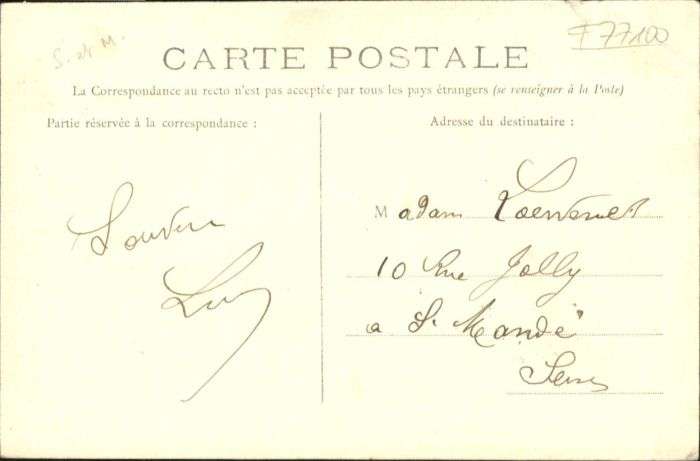 S. et M.
F77100
CARTE POSTALE
La Correspondance au recto n'est pas acceptée par tous les pays étrangers (se renseigner à la Poste)
Partie réservée à la correspondance :
Adresse du destinataire :
Madam
10 Rue Jolly
a St Mandé
Seine